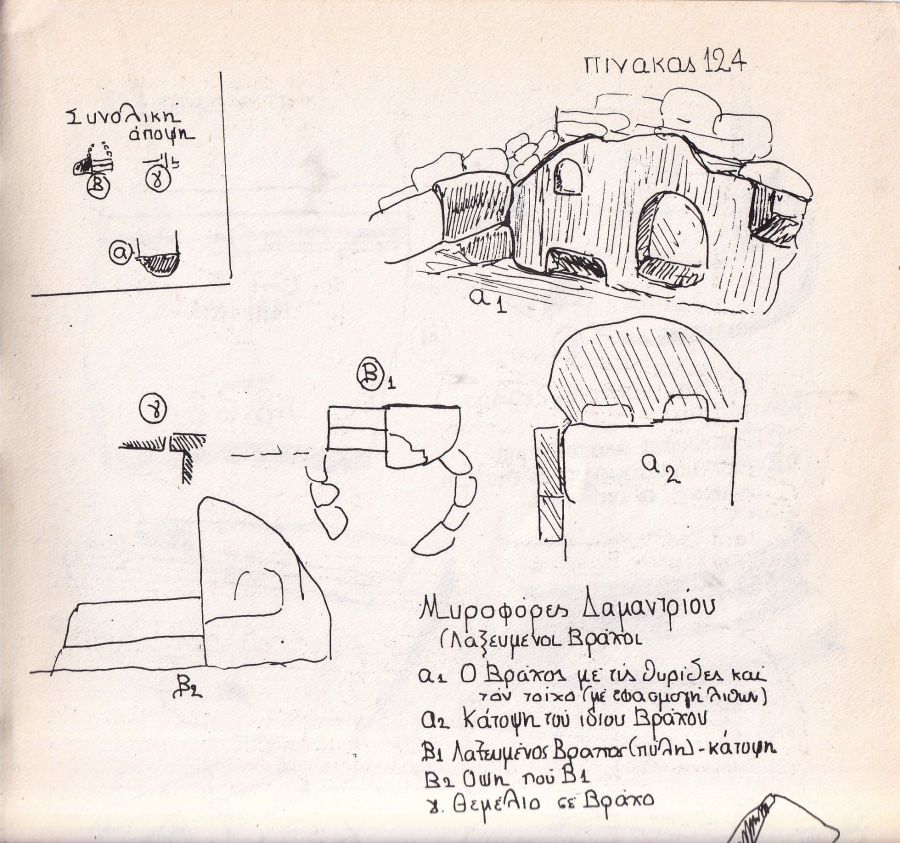 πινακας 124
Συνολικη
άποψη
Β γ
α
α1
Β1
γ
α2
Β2
Μυροφόρες Δαμαντρίου
(Λαξευμενοι Βράχοι
α1 Ο Βράχος με τις θυρίδες και
τον τοίχο (με εφαρμογη λιθων)
α2 Κάτοψη του ίδιου Βράχου
Β1 Λαξευμένος Βραχος (πύλη) - κάτοψη
Β2 Οψη του Β1
γ. Θεμέλιο σε Βράχο